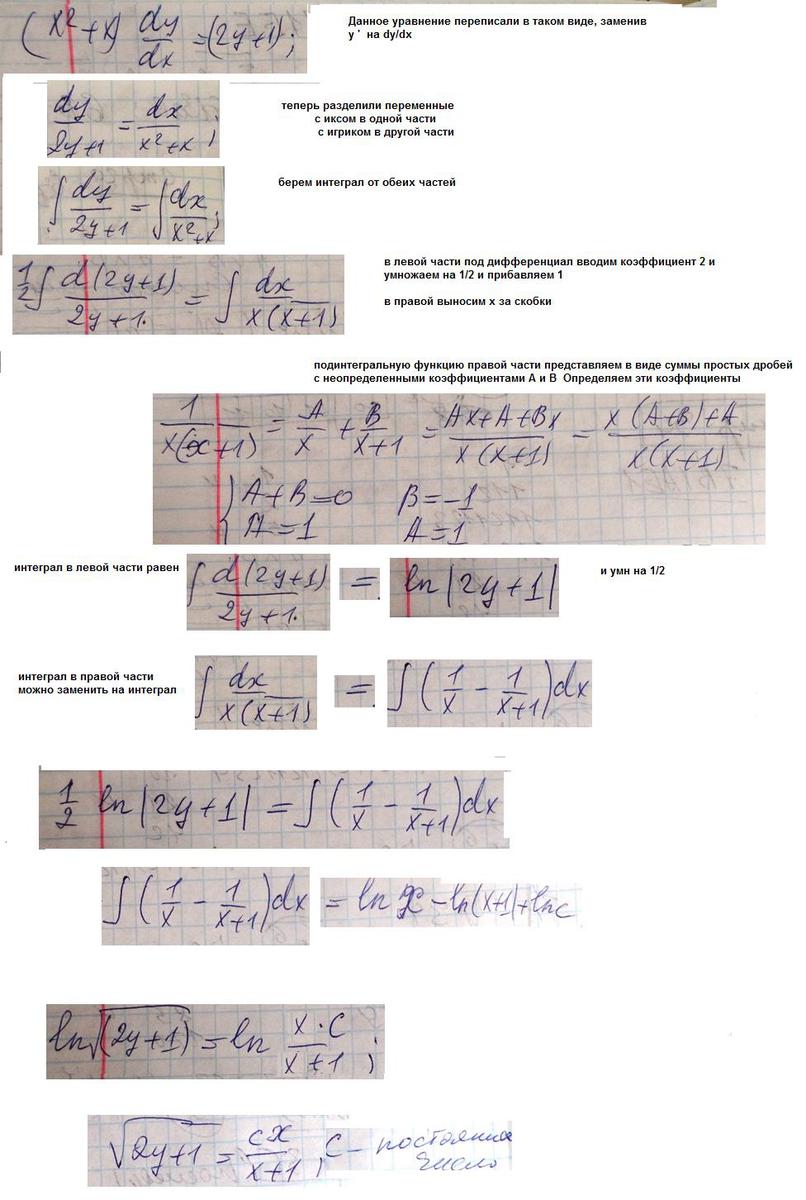 (x²+x) dy/dx =(2y+1);
Данное уравнение переписали в таком виде, заменив
y ' на dy/dx
dy/2y+1 = dx/x²+x ;
теперь разделили переменные
с иксом в одной части
с игриком в другой части
∫ dy/2y+1 = ∫ dx/x²+x ;
берем интеграл от обеих частей
1/2 ∫ d(2y+1)/2y+1. = ∫ dx/x(x+1)
в левой части под дифференциал вводим коэффициент 2 и
умножаем на 1/2 и прибавляем 1
в правой выносим x за скобки
подинтегральную функцию правой части представляем в виде суммы простых дробей
с неопределенными коэффициентами А и В Определяем эти коэффициенты
1/x(x+1) = A/x + B/x+1 = Ax+A+Bx/x(x+1) = x(A+B)+A/x(x+1)
{ A+B=0 B=-1
A=1 A=1
интеграл в левой части равен
∫ d(2y+1)/2y+1. = ln|2y+1|
и умн на 1/2
интеграл в правой части
можно заменить на интеграл
∫ dx/x(x+1) = ∫(1/x - 1/x+1)dx
1/2 ln|2y+1| = ∫(1/x - 1/x+1)dx
∫(1/x - 1/x+1)dx = ln x - ln(x+1)+lnc
ln√(2y+1) = ln x·C/x+1 ;
√2y+1 = cx/x+1 , C - постоянное
число